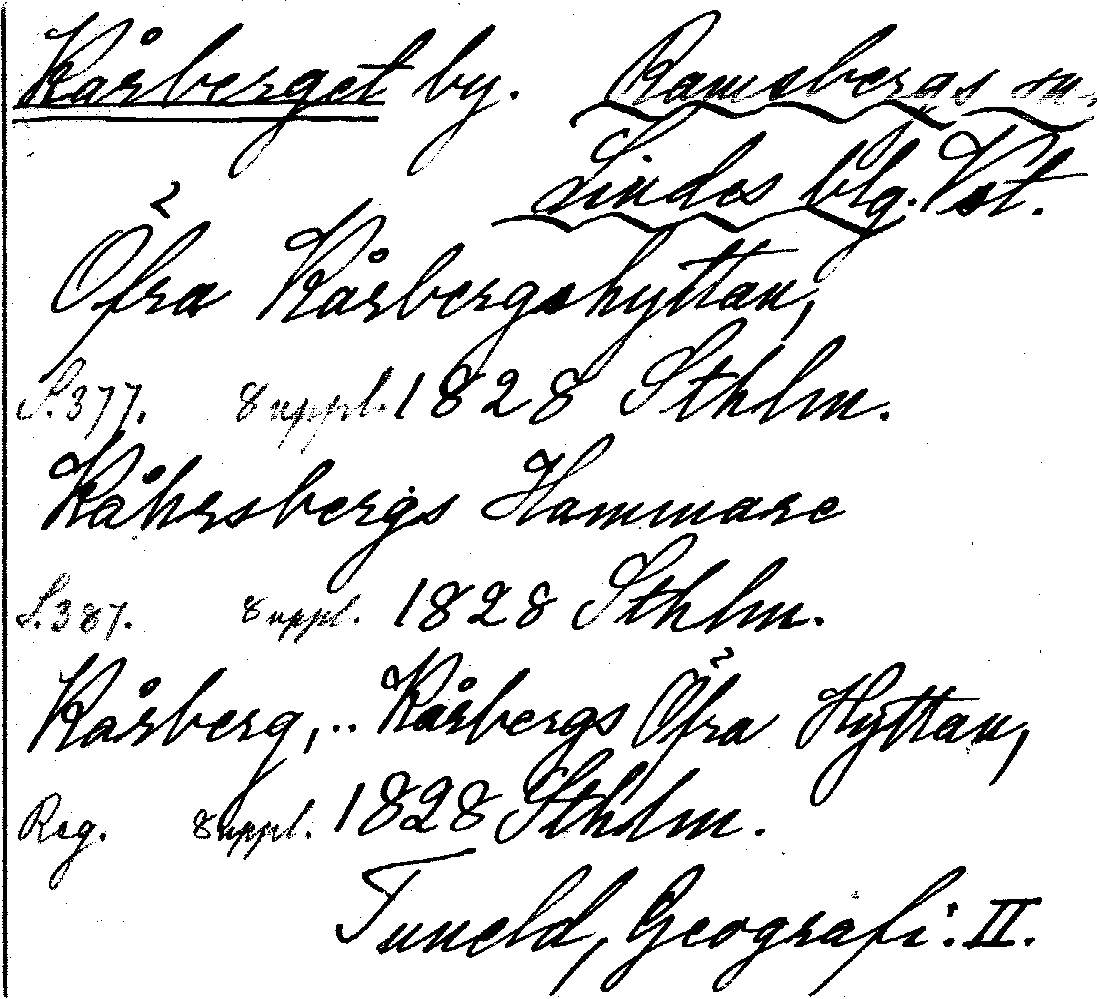 Kårberget by. Ramsbergs sn.
Lindes blg. Vst.
Öfra Kårbergshyttan,
S. 377. 8 uppl. 1828 Sthlm.
Kåhrsbergs Hammare
S. 387. 8 uppl. 1828 Sthlm.
Kårberg, .. Kårbergs Öfra Hyttan,
Reg. 8 uppl. 1828 Sthlm.
Tuneld, Geografi. II.